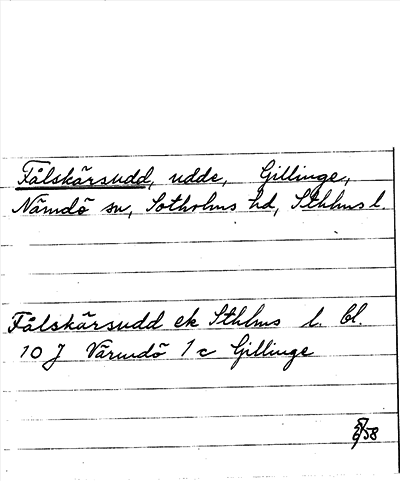 Fålskärsudd, udde, Gillinge,
Nämdö sn, Sotholms hd, Sthlms l.
Fålskärsudd ek Sthlms l. bl.
10 J Värmdö 1 c Gillinge
58